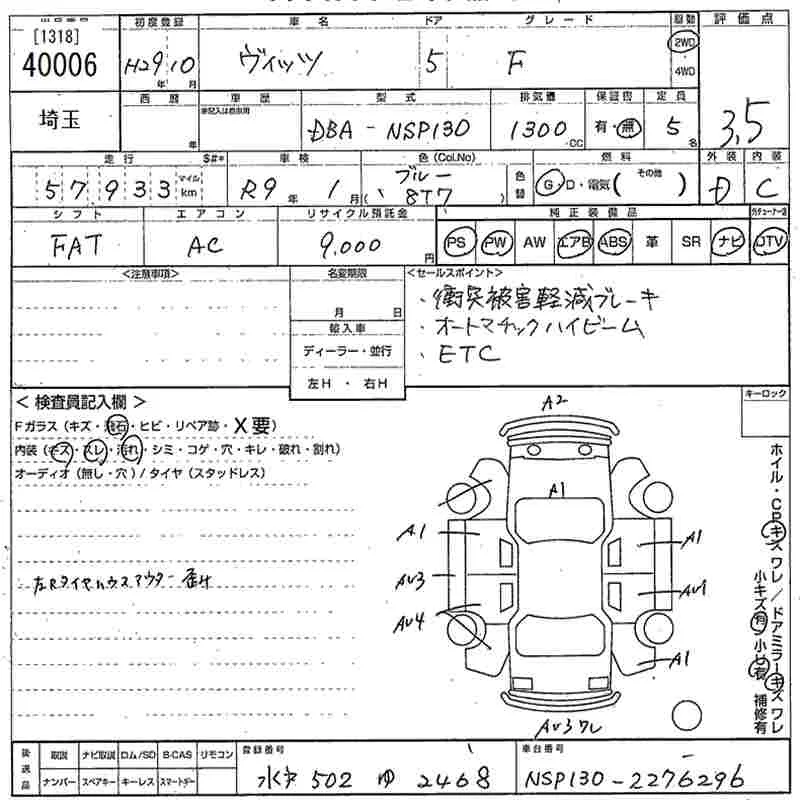 [1318]
40006
初度登録
車名
ドア
グレード
駆動
評価点
H29 10
年 月
ヴィッツ
5
F
2WD
4WD
3.5
埼玉
西暦
年
車歴
型式
DBA - NSP130
排気量
1300 CC
保証書
有・無
定員
5 名
走行
57933
マイル
km
車検
R9 年 1 月
色 (Col.No)
ブルー
( 8T7 )
色替
燃料
G・D・電気( その他 )
外装
D
内装
C
シフト
FAT
エアコン
AC
リサイクル預託金
9,000 円
純正装備品
PS PW AW エアB ABS 革 SR ナビ DTV
<注意事項>
名変期限
月 日
輸入車
ディーラー・並行
左H ・ 右H
<セールスポイント>
・衝突被害軽減ブレーキ
・オートマチックハイビーム
・ETC
< 検査員記入欄 >
Fガラス (キズ・飛石・ヒビ・リペア跡・X要)
内装 (キズ・スレ・汚れ・シミ・コゲ・穴・キレ・破れ・割れ)
オーディオ (無し・穴) / タイヤ (スタッドレス)
左Rタイヤハウスアウター歪み
キーロック
A2
A1
A1
A1
AU3
AU1
AU4
A1
AU3ワレ
ホイル・CPキズワレ/ドアミラーキズワレ
小キズ有 小ヒ有 補修有
後送品
取説 ナビ取説 ロム/SD B-CAS リモコン
ナンバー スペアキー キーレス スマートキー
登録番号
水戸 502 ゆ 2468
車台番号
NSP130-2276296